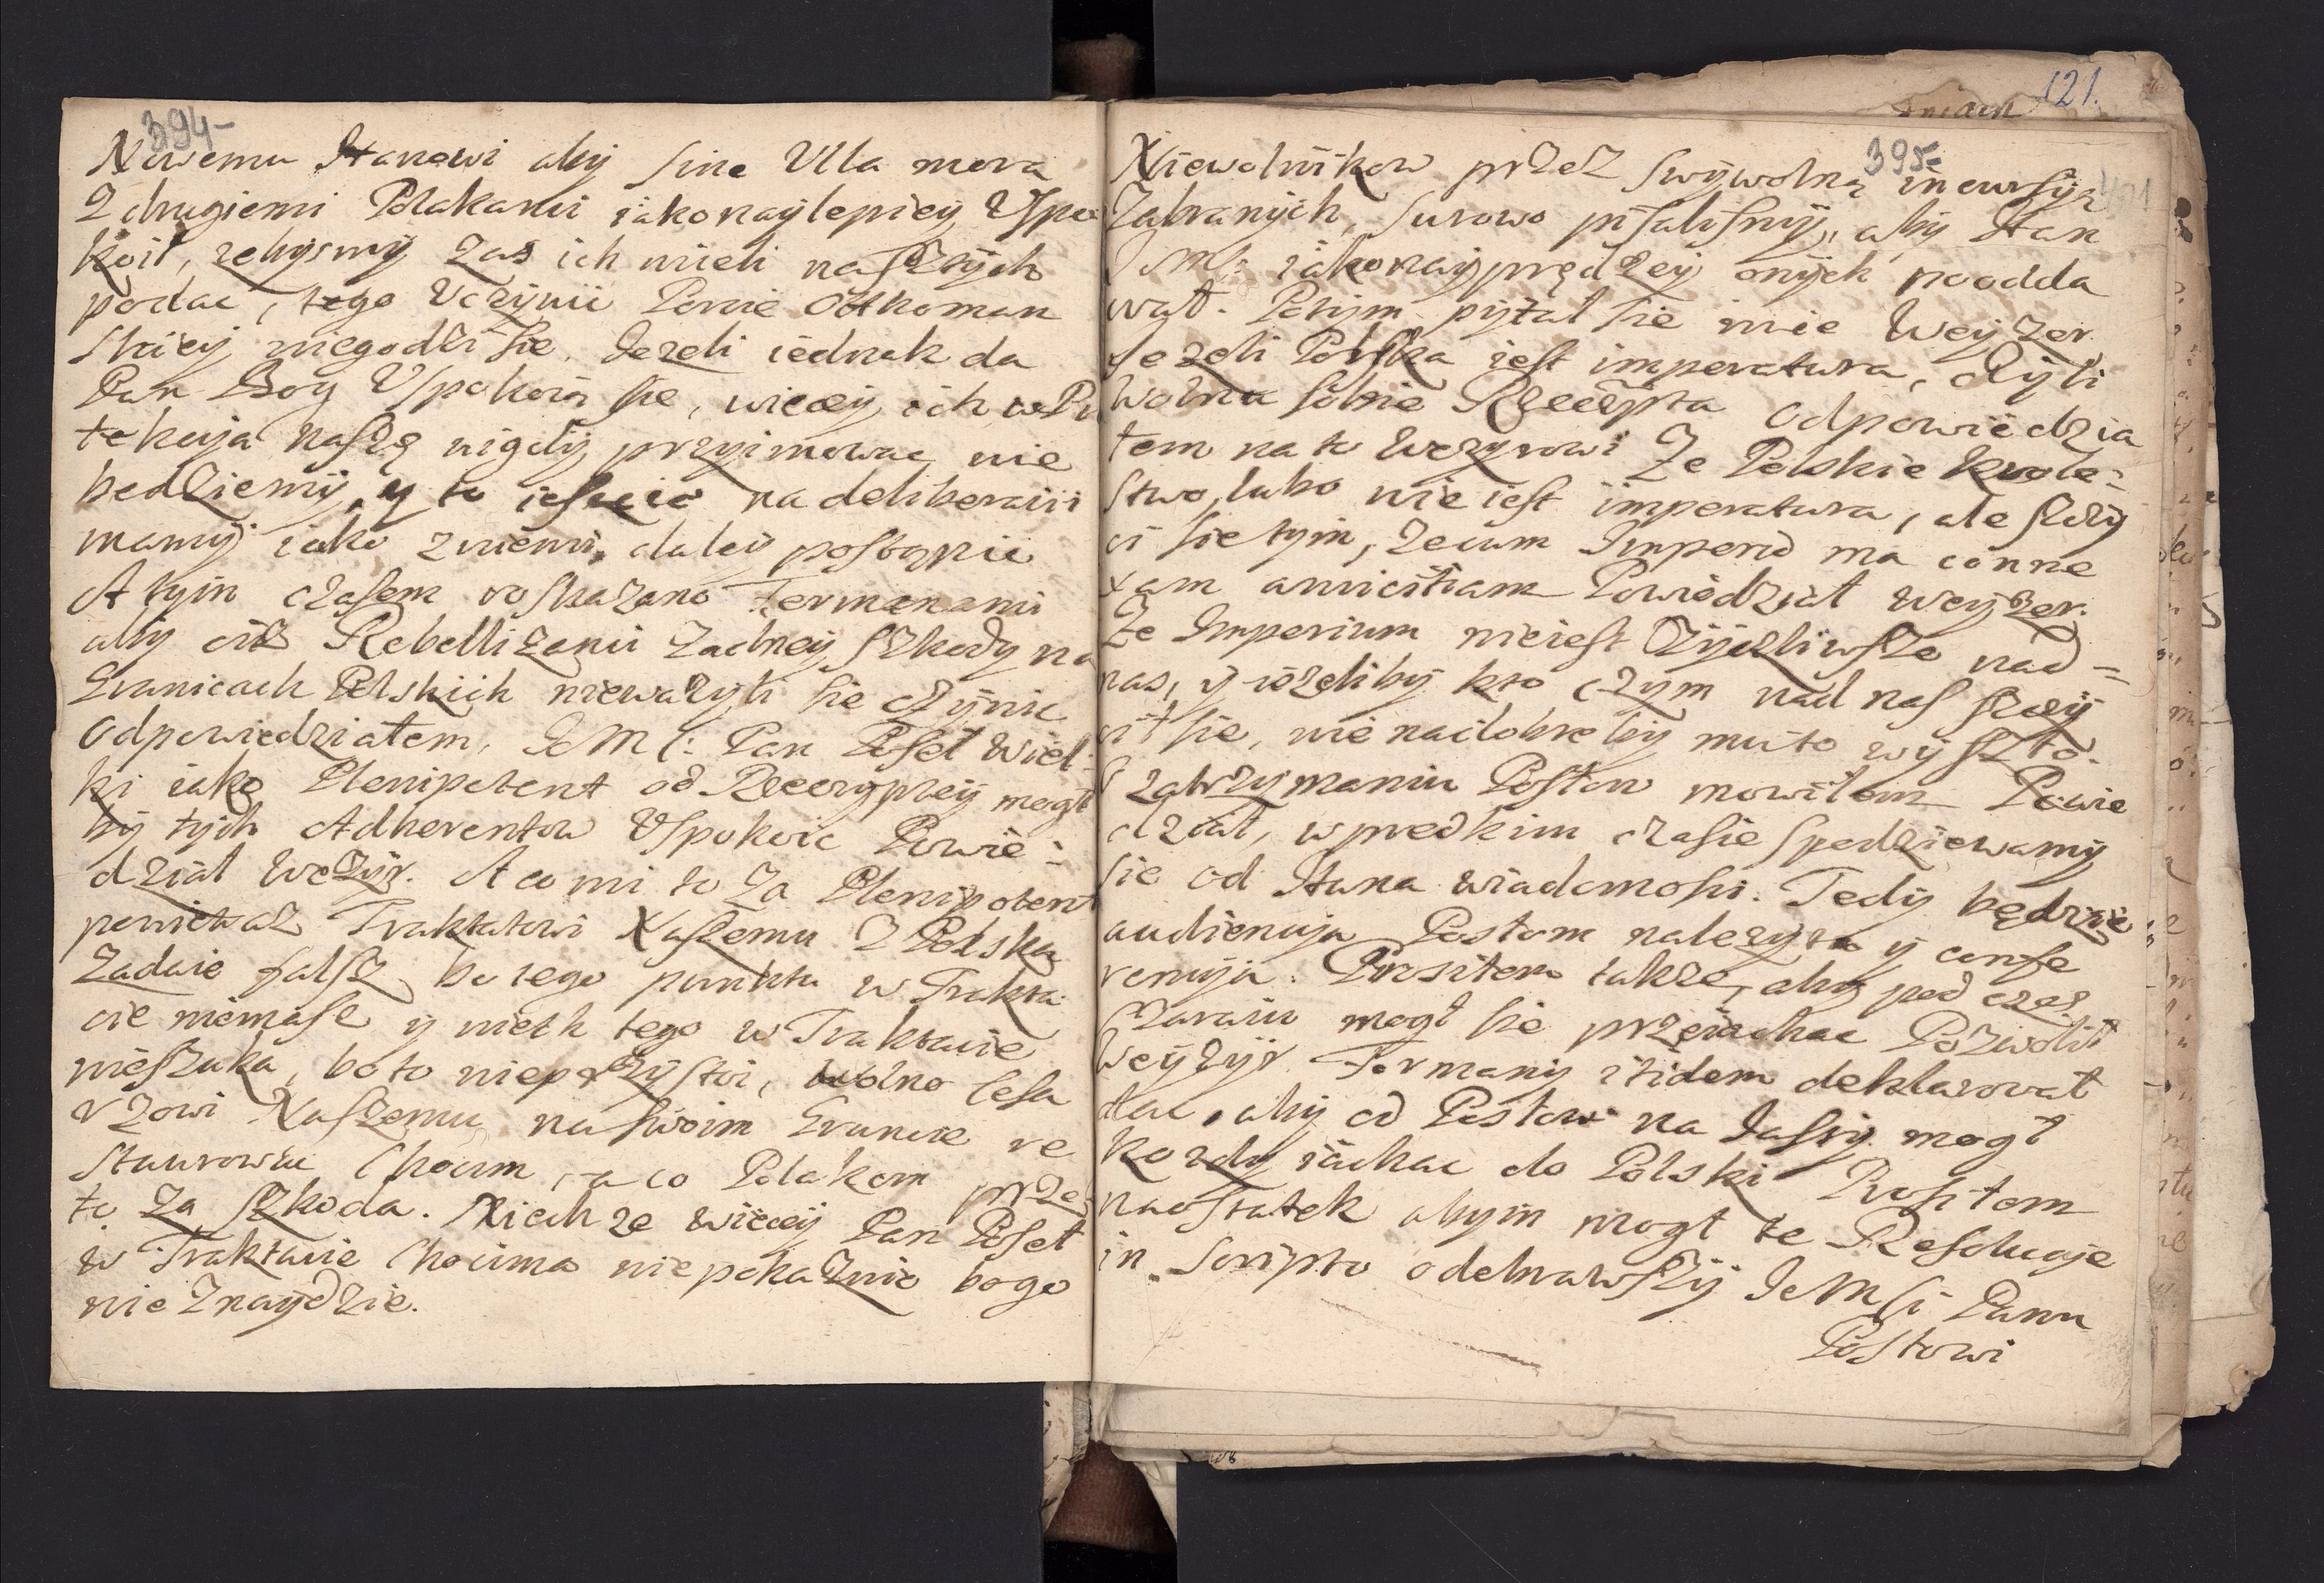 394-
Nowemu Hanowi aby sine Ulla mora
Z drugiemi Polakami iako naylepiey Uspo
koił, zebysmy zas ich mieli naszych
podac, tego Uczynic Porcie Ottoman
skiey niegodzi sie. Jezeli iednak da
Pan Bog Uspokoią sie, wiecey ich w Pro
tekcyją naszę nigdy przyimowac nie
bedziemy, y to ieszcze na deliberacii
mamy iako z niemi daley postąpic
A tym czasem roskazano Fermanami
aby ciż Rebellizanci zadney szkody na
Granicach Polskich niewazyli sie czynic
Odpowiedziałem, JeMści Pan Poseł Wiel:
ki iako Plenipotent od Rzeczyptey mogł
by tych Adherentow Uspokoic Powie:
dział Wezyr. A co mi to Za Plenipotent
poniewaz Traktatowi Naszemu Z Polską
Zadaie falsz, bo tego punktu w Trakta
cie niemasz y niech tego w Traktacie
nieszuka, bo to nieprzystoi, Wolno Cesa
rzowi Naszemu na swoim Gruncie re
staurowac Chocim, a co Polakom przez
to za szkoda. Niech ze wiecey Pan Poseł
w Traktacie Chocima niepokaznie bo go
nie Znaydzie.
121.
395-
Niewolnikow przez swywolną incursyą
Zabranych, surowo pisalismy, aby Han
Jmć iako nayprędzey onych pooddа
wał. Potym pytał sie mie Weyzer
Jezeli Polska iest imperatura, czyli
wolna sobie Rzeczpta Odpowiedzia
łem na to Wezyrowi Ze Polskie Krole:
stwo, lubo nie iest imperatura, ale szczy
ci sie tym, ze cum Imperio ma conne
xam amicitiam Powiedział Weyzer.
Ze Imperium nieiest Zyczliwsze nad=
nas, y iezeliby kto czym nad nas szczy
cił sie, nie naidobrze by mu to wyszło.
O zatrzymaniu Posłow mowiłem Powie
dział, w predkim czasie spodziewamy
sie od Hana wiadomosci. Tedy będzie
audiencyja Posłom nalezyta y confe
rencyja. Prosiłem takze, aby pod czas
Zarazu mogł sie przeiachac Pozwolił
Weyzyr. Fermany itidem deklarował
dac, aby od Posłow na Jassy mogł
kozdy iachac do Polski Prosiłem
naostatek abym mogł te Resolucyje
in Scripto odebrawszy JeMści Panu
Posłowi